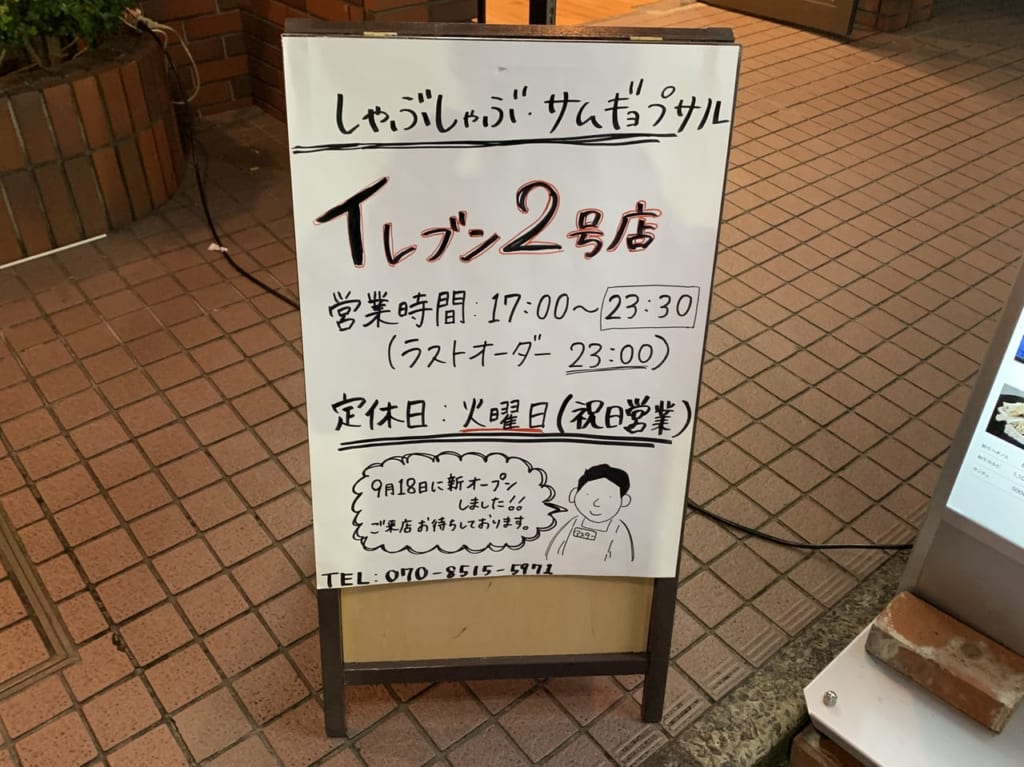 しゃぶしゃぶ・サムギョプサル
イレブン2号店
営業時間:17:00〜23:30
(ラストオーダー 23:00)
定休日:火曜日(祝日営業)
9月18日に新オープン
しました!!
ご来店お待ちしております。
TEL:070-8515-5971